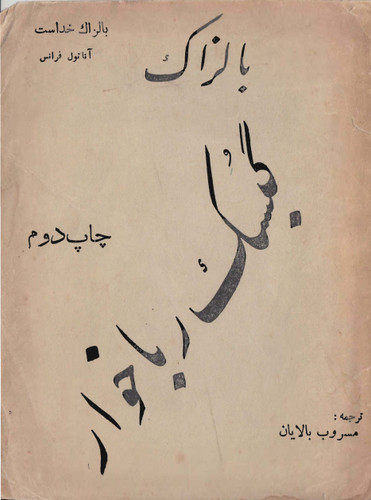 بالزاك خداست
آناتول فرانس
بالزاك
گوبسك رباخوار
چاپ دوم
ترجمه :
مسروب بالایان